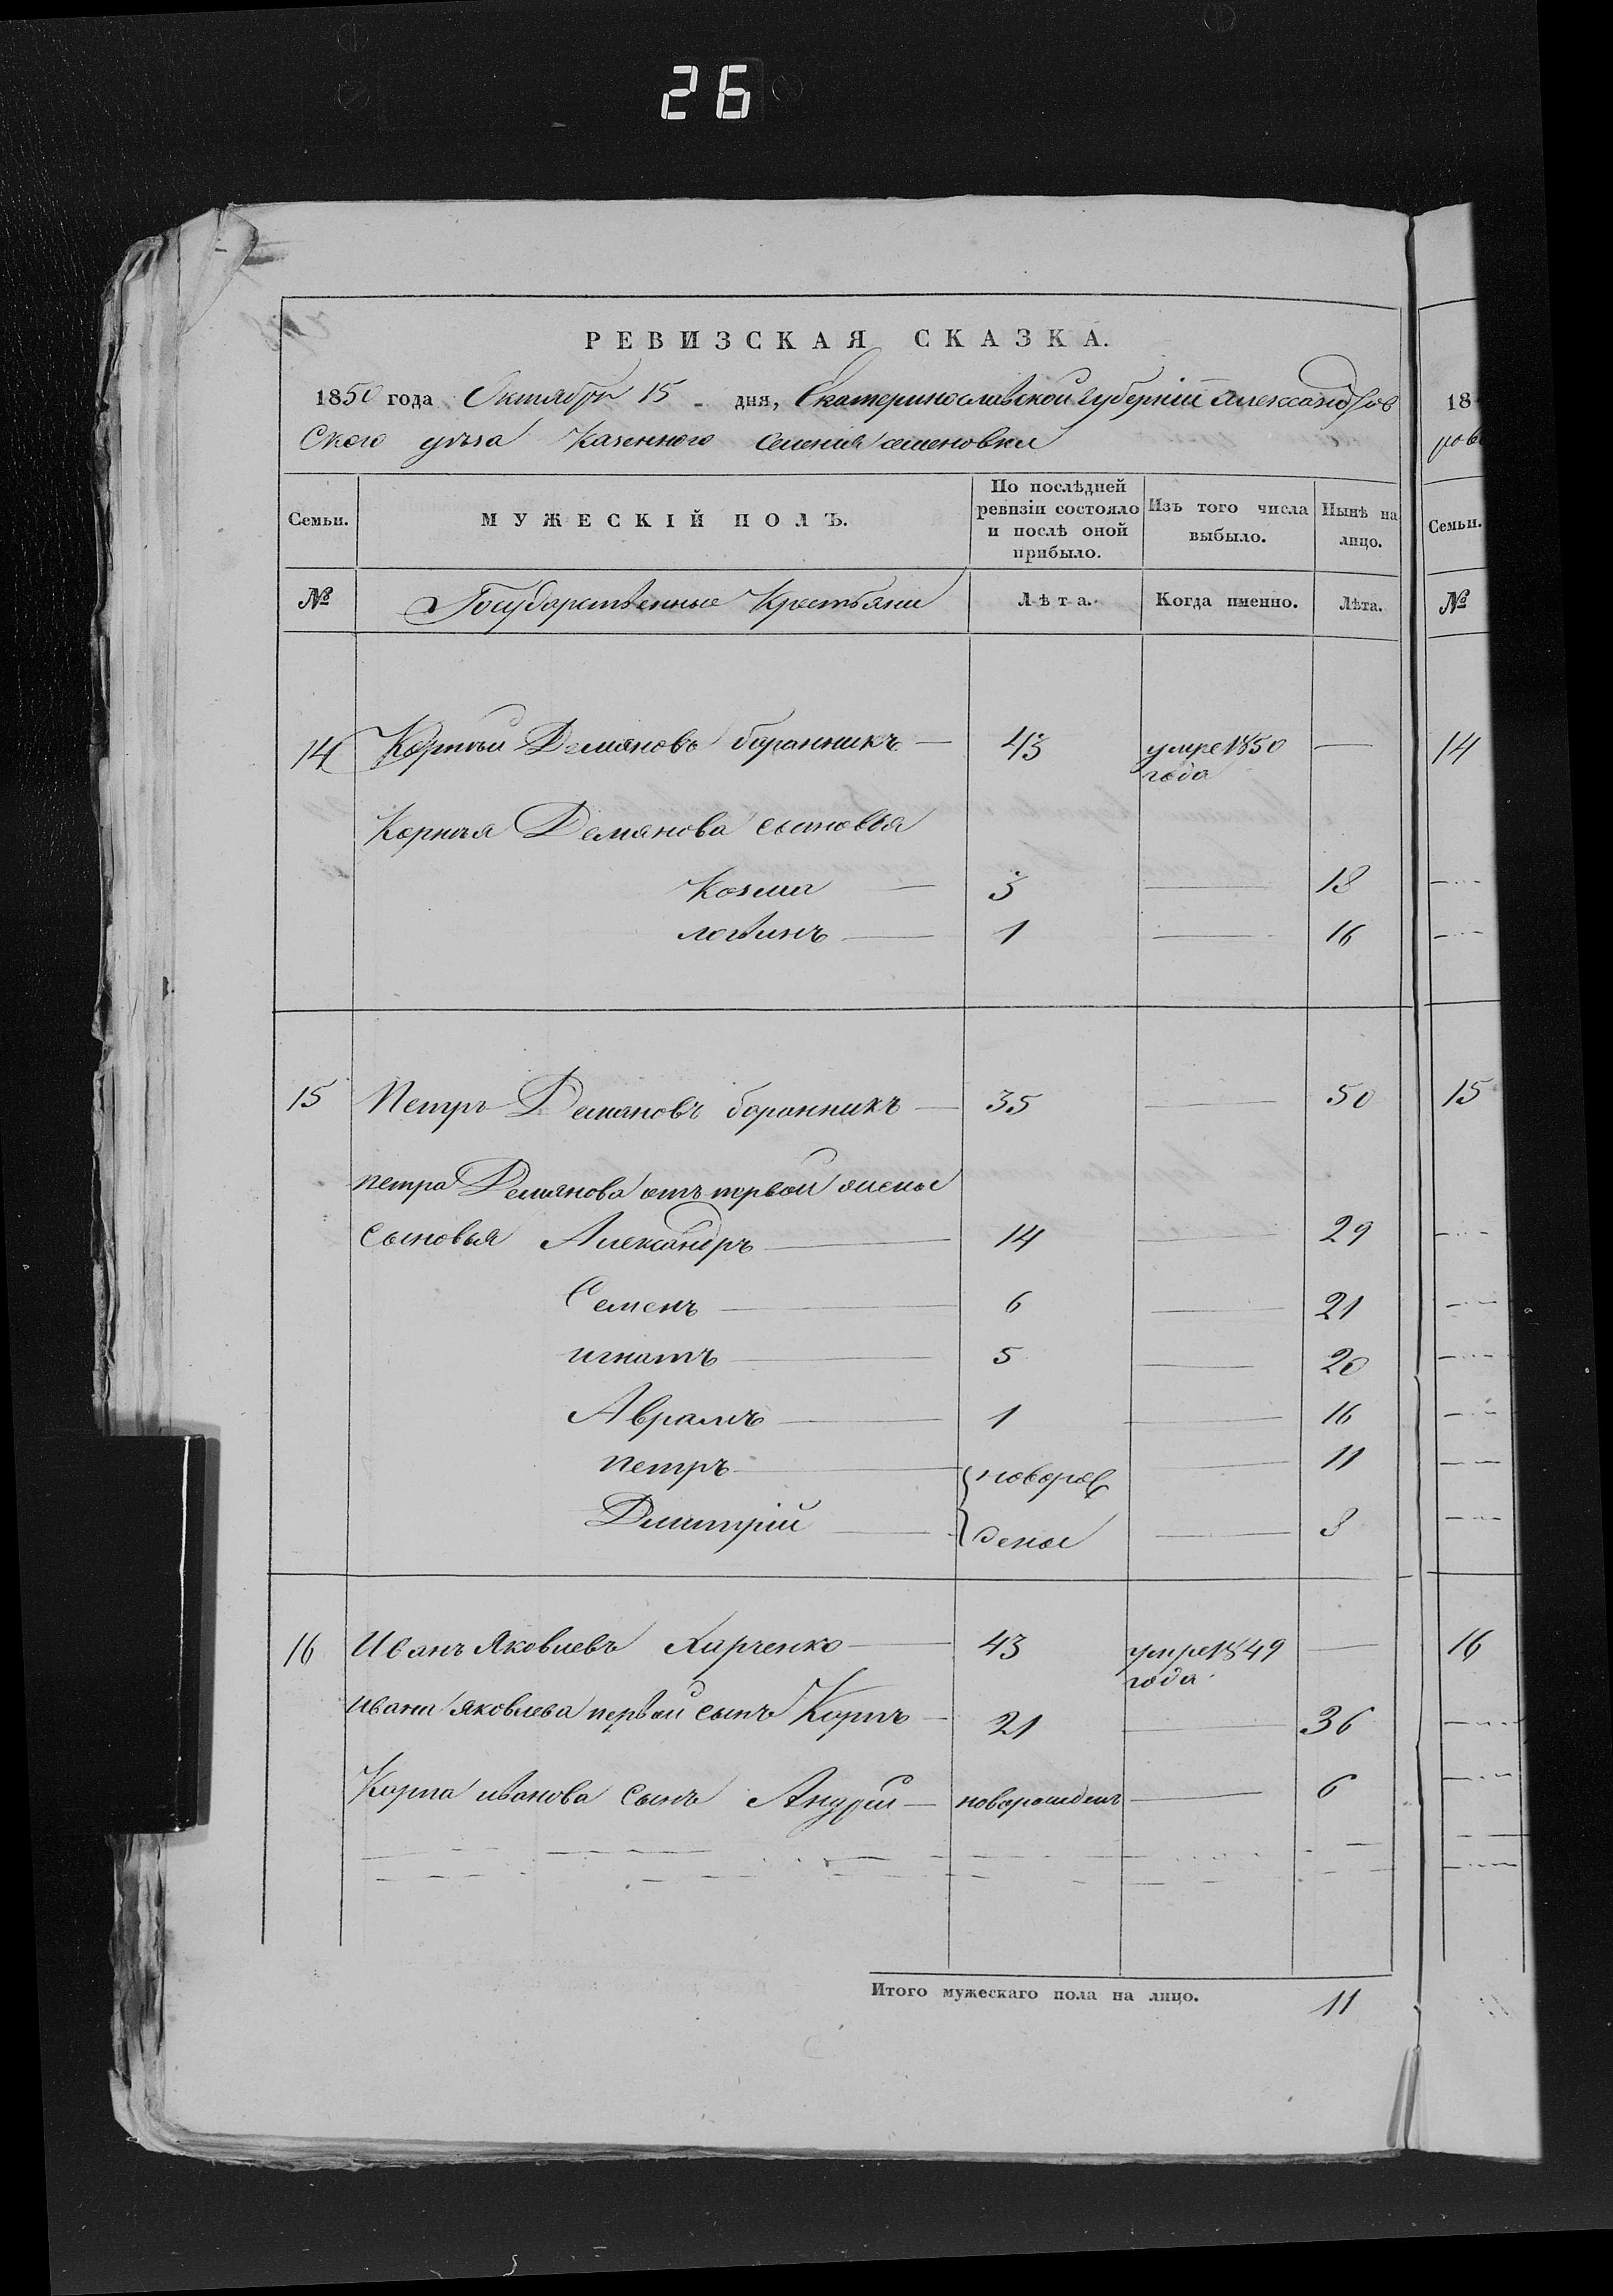 26
РЕВИЗСКАЯ СКАЗКА.
1850 года Октября 15 дня, Екатеринославской Губерніи Александров
Ского уѣзда Казенного Селенія семеновки
Семьи.
МУЖЕСКІЙ ПОЛЪ.
По послѣдней
ревизіи состояло
и послѣ оной
прибыло.
Изъ того числа
выбыло.
Нынѣ на
лицо.
№
Государственные Крестьяни
Лѣта.
Когда именно.
Лѣта.
14 Корнѣй Демяновъ баранникъ — 43 умре 1850 —
года
Корнѣя Демянова сыновья
Козма — 3 — 18
логвинъ — 1 — 16
15 Петръ Демяновъ баранникъ — 35 — 50
петра Демянова отъ первой жены
Сыновья Александръ — 14 — 29
Семенъ — 6 — 21
игнатъ — 5 — 20
Аврамъ — 1 — 16
петръ — новорож — 11
Дмитрій — дены — 8
16 Иванъ Яковлевъ Харченко — 43 умре 1849 —
года
ивана яковлева первой сынъ Карпъ — 21 — 36
Карпа иванова Сынъ Андрей — новорожденъ — 6
Итого мужескаго пола на лицо. 11
18
ров
Семьи.
№
14
15
16